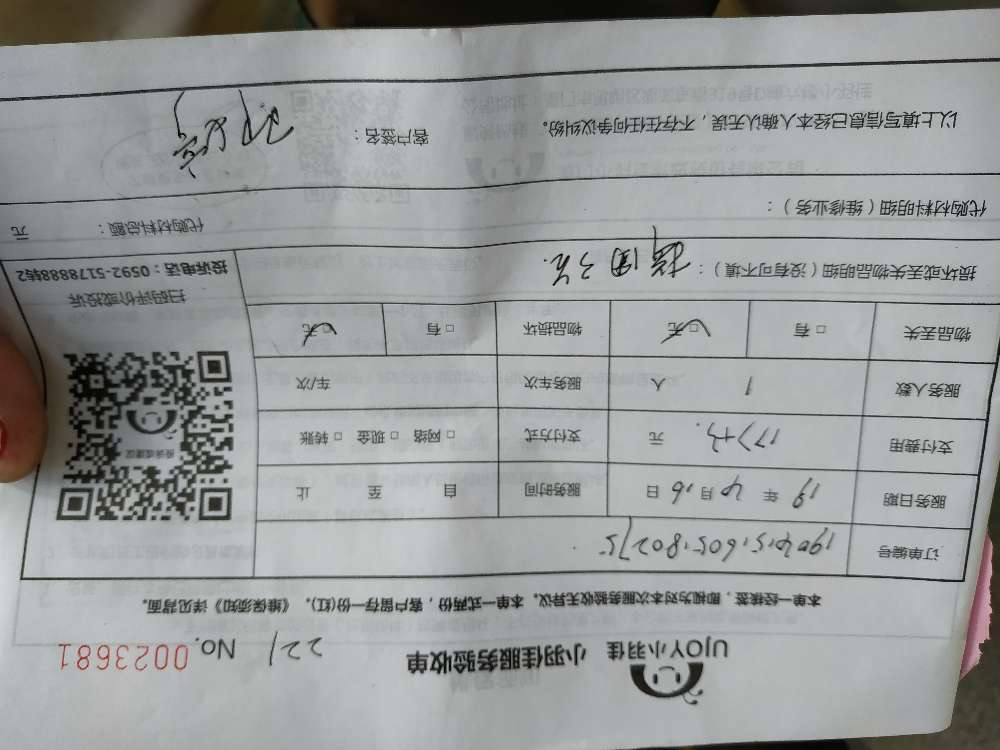 UJOY小羽佳 小羽佳服务验收单 221 No. 0023681
本单一经接签，即视为对本次服务验收无异议。本单一式两份，客户留存一份(红)。《维保须知》详见背面。
订单编号
服务日期 19 年 4 月 16 日 服务时间 自 至 止
支付费用 177+3. 元 支付方式 □ 网络 □ 现金 □ 转账
服务人数 1 人 服务车次 车/次
物品丢失 □ 有 □ 无 物品损坏 □ 有 □ 无
投诉或建议
扫码评价或投诉
投诉电话：0592-5178888转2
损坏或丢失物品明细（没有可不填）： 3元.
代购材料明细（维修业务）： 代购材料总额： 元
以上填写信息已经本人确认无误，不存在任何争议纠纷。 客户签名：